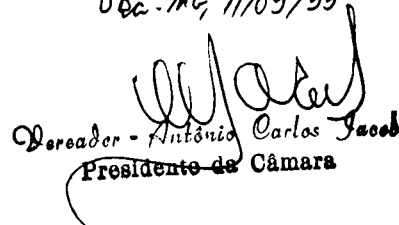 Ubá-MG, 11/03/99
Vereador - Antônio Carlos Jacob
Presidente da Câmara